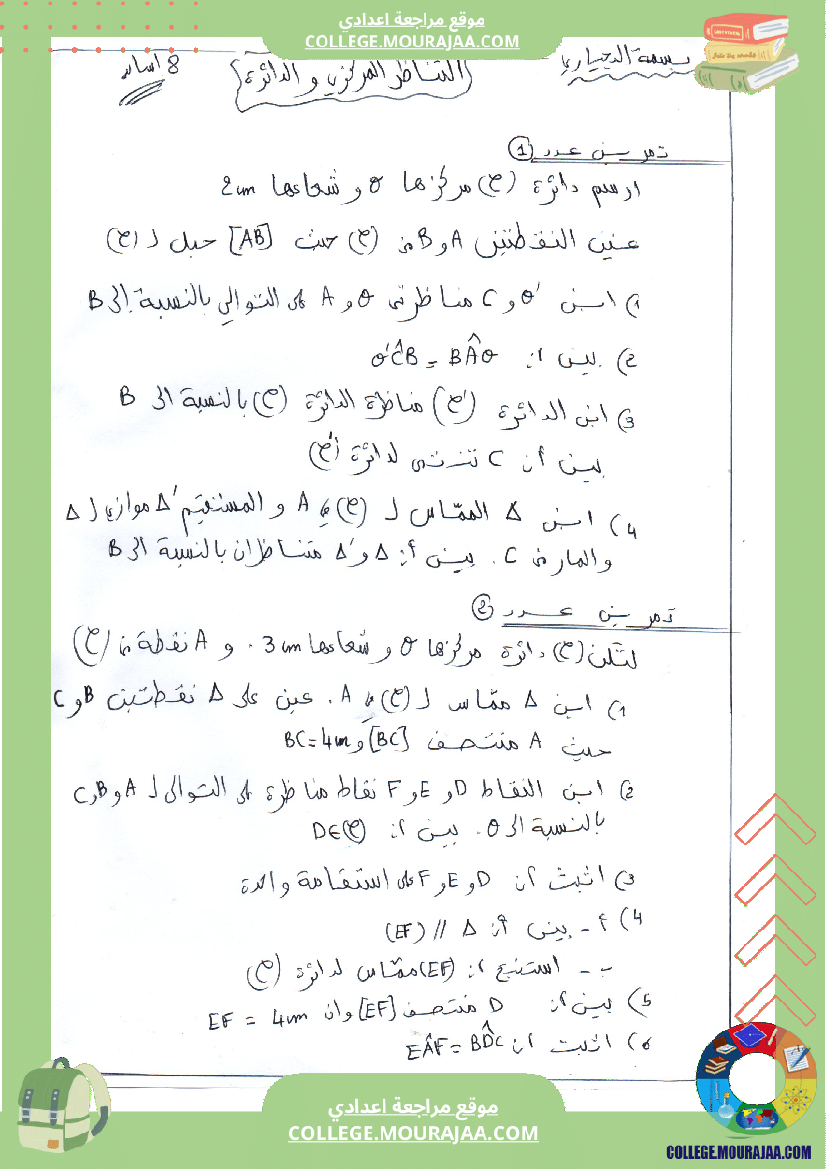 موقع مراجعة اعدادي
COLLEGE.MOURAJAA.COM
8 اساسي
التناظر المركزي والدائرة
بسمة
تمرين عدد 1
ارسم دائرة (C) مركزها O وشعاعها 2cm
عين النقطتين A و B من (C) حيث [AB] حبل لـ (C)
1) ابن O' و C مناظرتي O و A على التوالي بالنسبة إلى B
2) بين أن O'ĈB = BÂO
3) ابن الدائرة (C') مناظرة الدائرة (C) بالنسبة الى B
بين أن C تنتمي لدائرة (C')
4) ابن Δ المماس لـ (C) في A و المستقيم Δ' موازي لـ Δ
والمار من C. بين أن Δ و Δ' متناظران بالنسبة الى B
تمرين عدد 2
لتكن (C) دائرة مركزها O وشعاعها 3cm. و A نقطة من (C)
1) ابن Δ مماس لـ (C) في A. عين على Δ نقطتين B و C
حيث A منتصف [BC] و BC=4cm
2) ابن النقاط D و E و F نقاط مناظرة على التوالي لـ A و B و C
بالنسبة الى O. بين أن D∈(C)
3) اثبت أن D و E و F على استقامة واحدة
4) أ - بين أن Δ // (EF)
ب - استنتج أن (EF) مماس لدائرة (C)
5) بين أن D منتصف [EF] وان EF = 4cm
6) اثبت أن EÂF = BD̂C
موقع مراجعة اعدادي
COLLEGE.MOURAJAA.COM
COLLEGE.MOURAJAA.COM